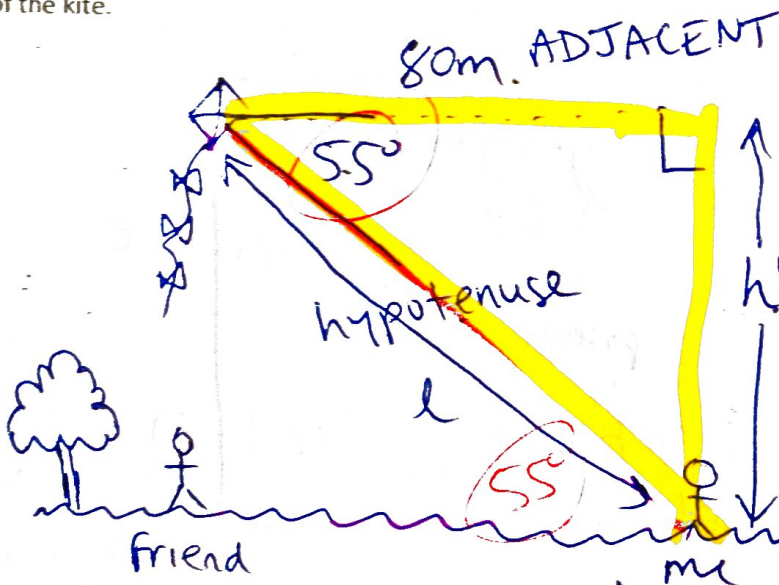 of the kite.
80m. ADJACENT
55°
h
hypotenuse
l
55°
friend
me